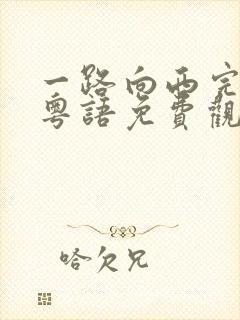 一路向西完
粤語免費觀
哈欠兄